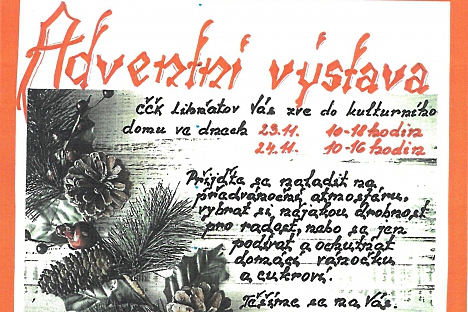 Adventní výstava
ČČK Libňatov Vás zve do kulturního
domu ve dnech 23.11. 10-18 hodin
24.11. 10-16 hodin
Přijďte se naladit na
předvánoční atmosféru,
vybrat si nějakou drobnost
pro radost, nebo se jen
podívat a ochutnat
domácí vánočku
a cukroví.
Těšíme se na Vás.